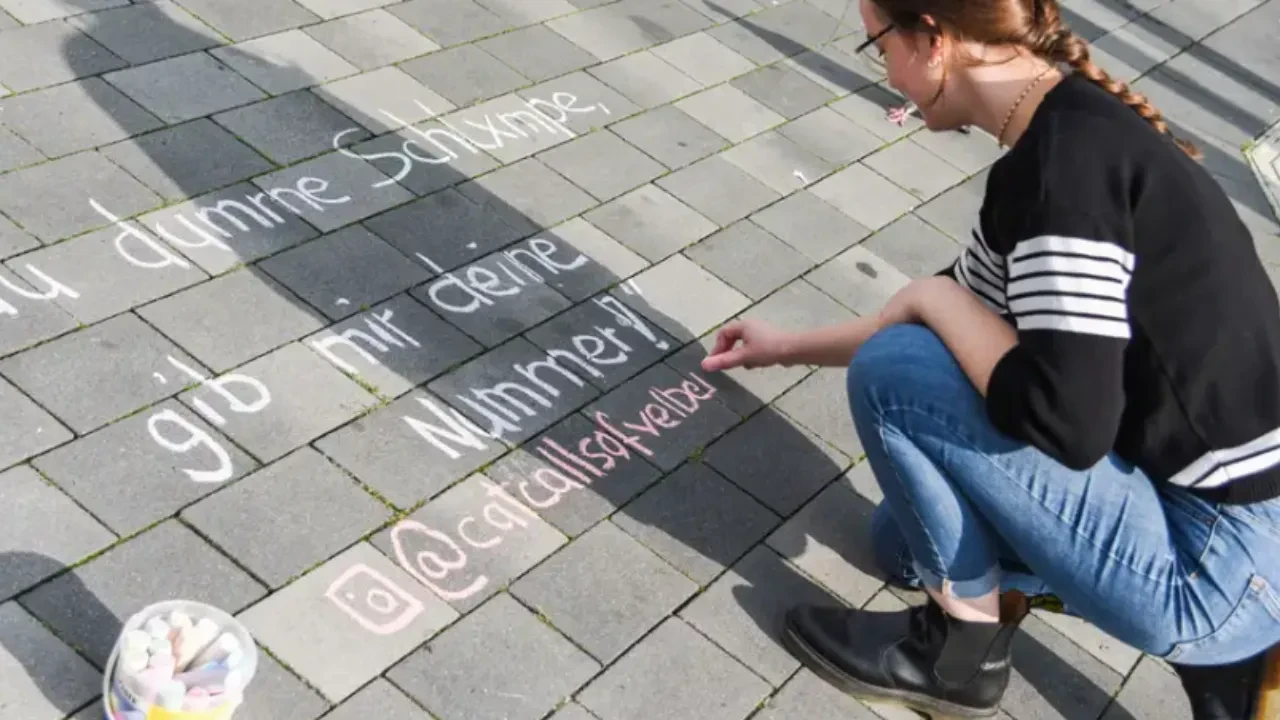 u dumme Schlxmpe,
gib mir deine
Nummer!"
@catcallsofvelbe